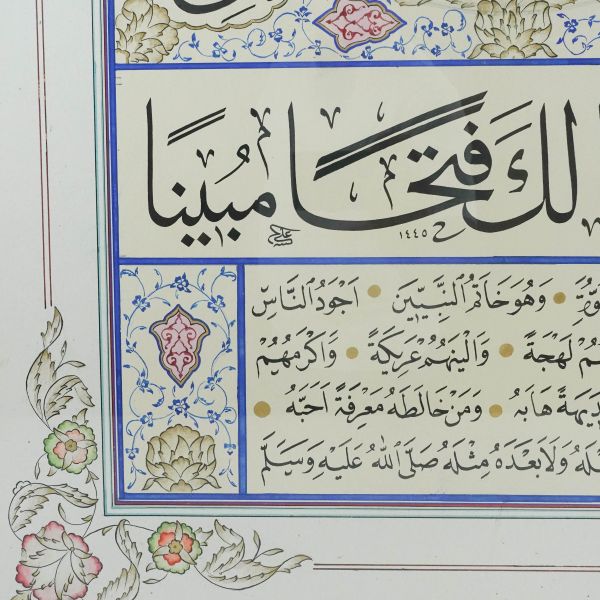 لَكَ فَتْحًا مُبِينًا
١٤٤٥
وَهُوَ خَاتَمُ النَّبِيّٖينَ اَجْوَدُ النَّاسِ
لَهْجَةً وَاَلْيَنُهُمْ عَرِيكَةً وَاَكْرَمُهُمْ
هَابَهُ وَمَنْ خَالَطَهُ مَعْرِفَةً اَحَبَّهُ
وَلَا بَعْدَهُ مِثْلَهُ صَلَّى اللّٰهُ عَلَيْهِ وَسَلَّمَ